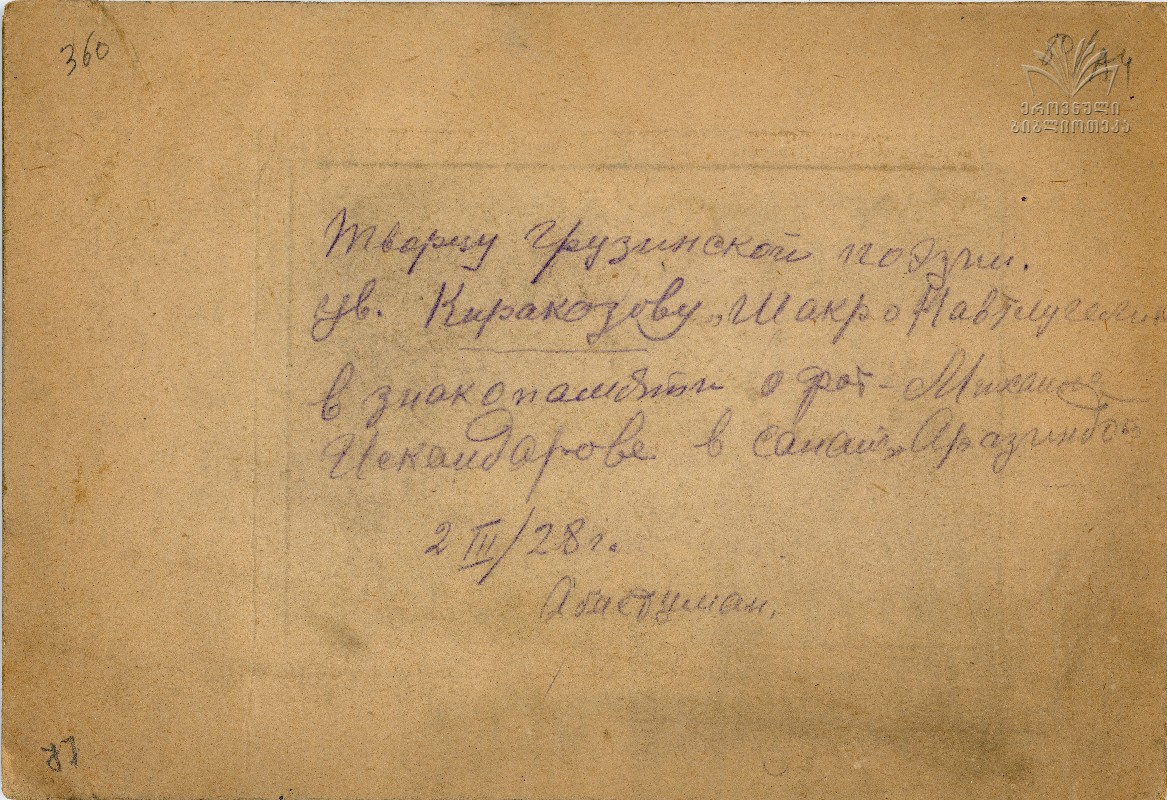 360
ეროვნული
ბიბლიოთეკა
Творцу грузинской поэзии.
ув. Киракозову „Шакро Навтлугели"
в знак о памяти о фот- Михаиле
Искандарове в санат.
2 III/28 г.
Абастуман.